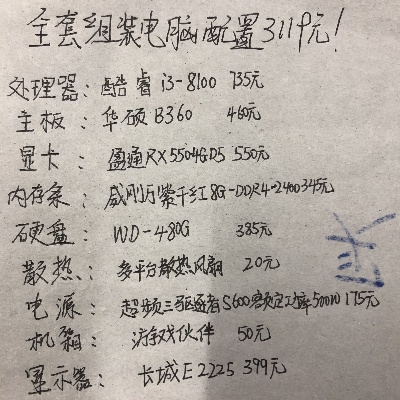 全套组装电脑配置3119元!
处理器: 酷睿i3-8100 735元
主板: 华硕B360 460元
显卡: 盈通RX550-4GD5 550元
内存条: 威刚万紫千红8G-DDR4-2400 345元
硬盘: WD-480G 385元
散热: 多平台散热风扇 20元
电源: 超频三驱逐者S600 额定功率500W 175元
机箱: 游戏伙伴 50元
显示器: 长城E2225 399元